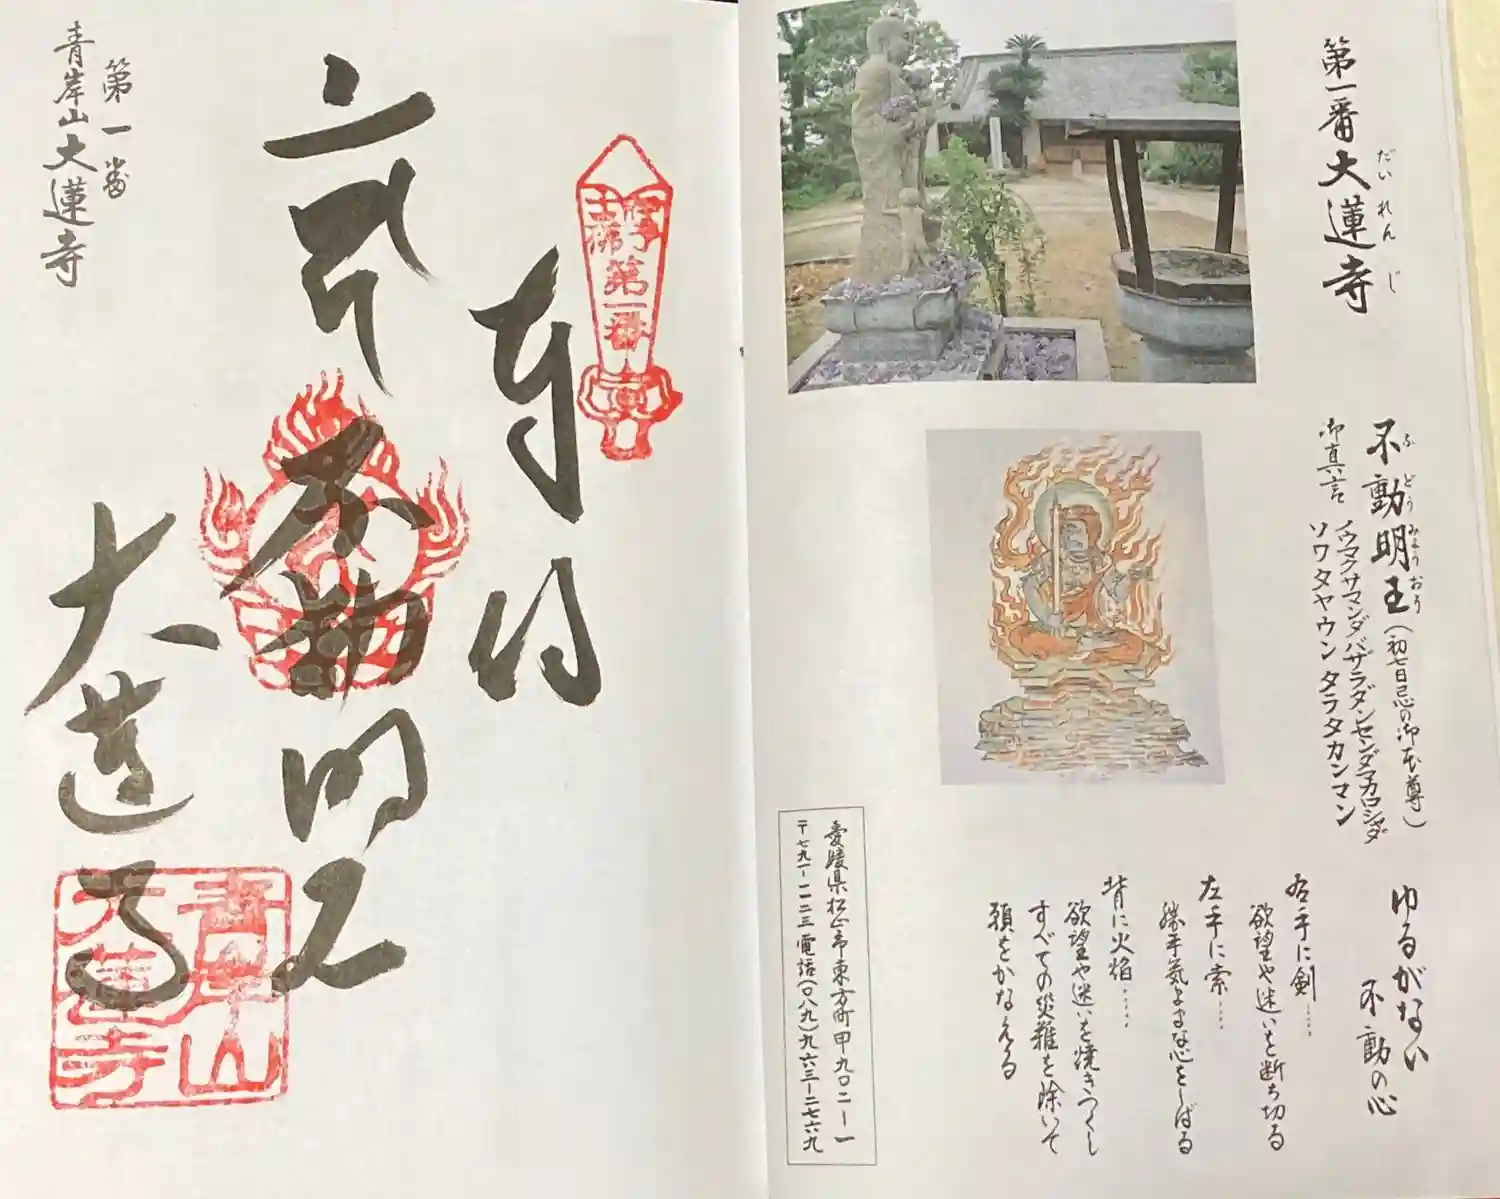 第一番大蓮寺
だいれんじ
不動明王(初七日忌の御本尊)
ふどうみょうおう
御真言 ノウマクサマンダバザラダンセンダマカロシャダ
ソワタヤウンタラタカンマン
ゆるがない
不動の心
右手に剣……
欲望や迷いを断ち切る
左手に索……
勝手気ままな心をしばる
背に火焔……
欲望や迷いを焼きつくし
すべての災難を除いて
願をかなえる
愛媛県松山市東方町甲九〇二ー一
〒七九一ー一一二三 電話(〇八九)九六三ー二七六九
第一番
奉拝
不動明王
大蓮寺
青岸山
大蓮寺
第一番
青岸山大蓮寺